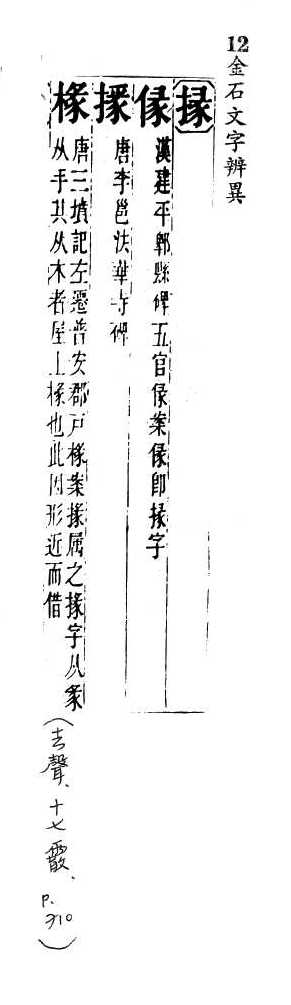 12金石文字辨異
掾
漢建平郫縣碑五官案即掾字
唐李邕法華寺碑
椽
唐三墳記左遷普安郡戶椽案掾属之掾字从彖
从手其从木者屋上椽也此因形近而借
(去聲、十七霰、p.310)